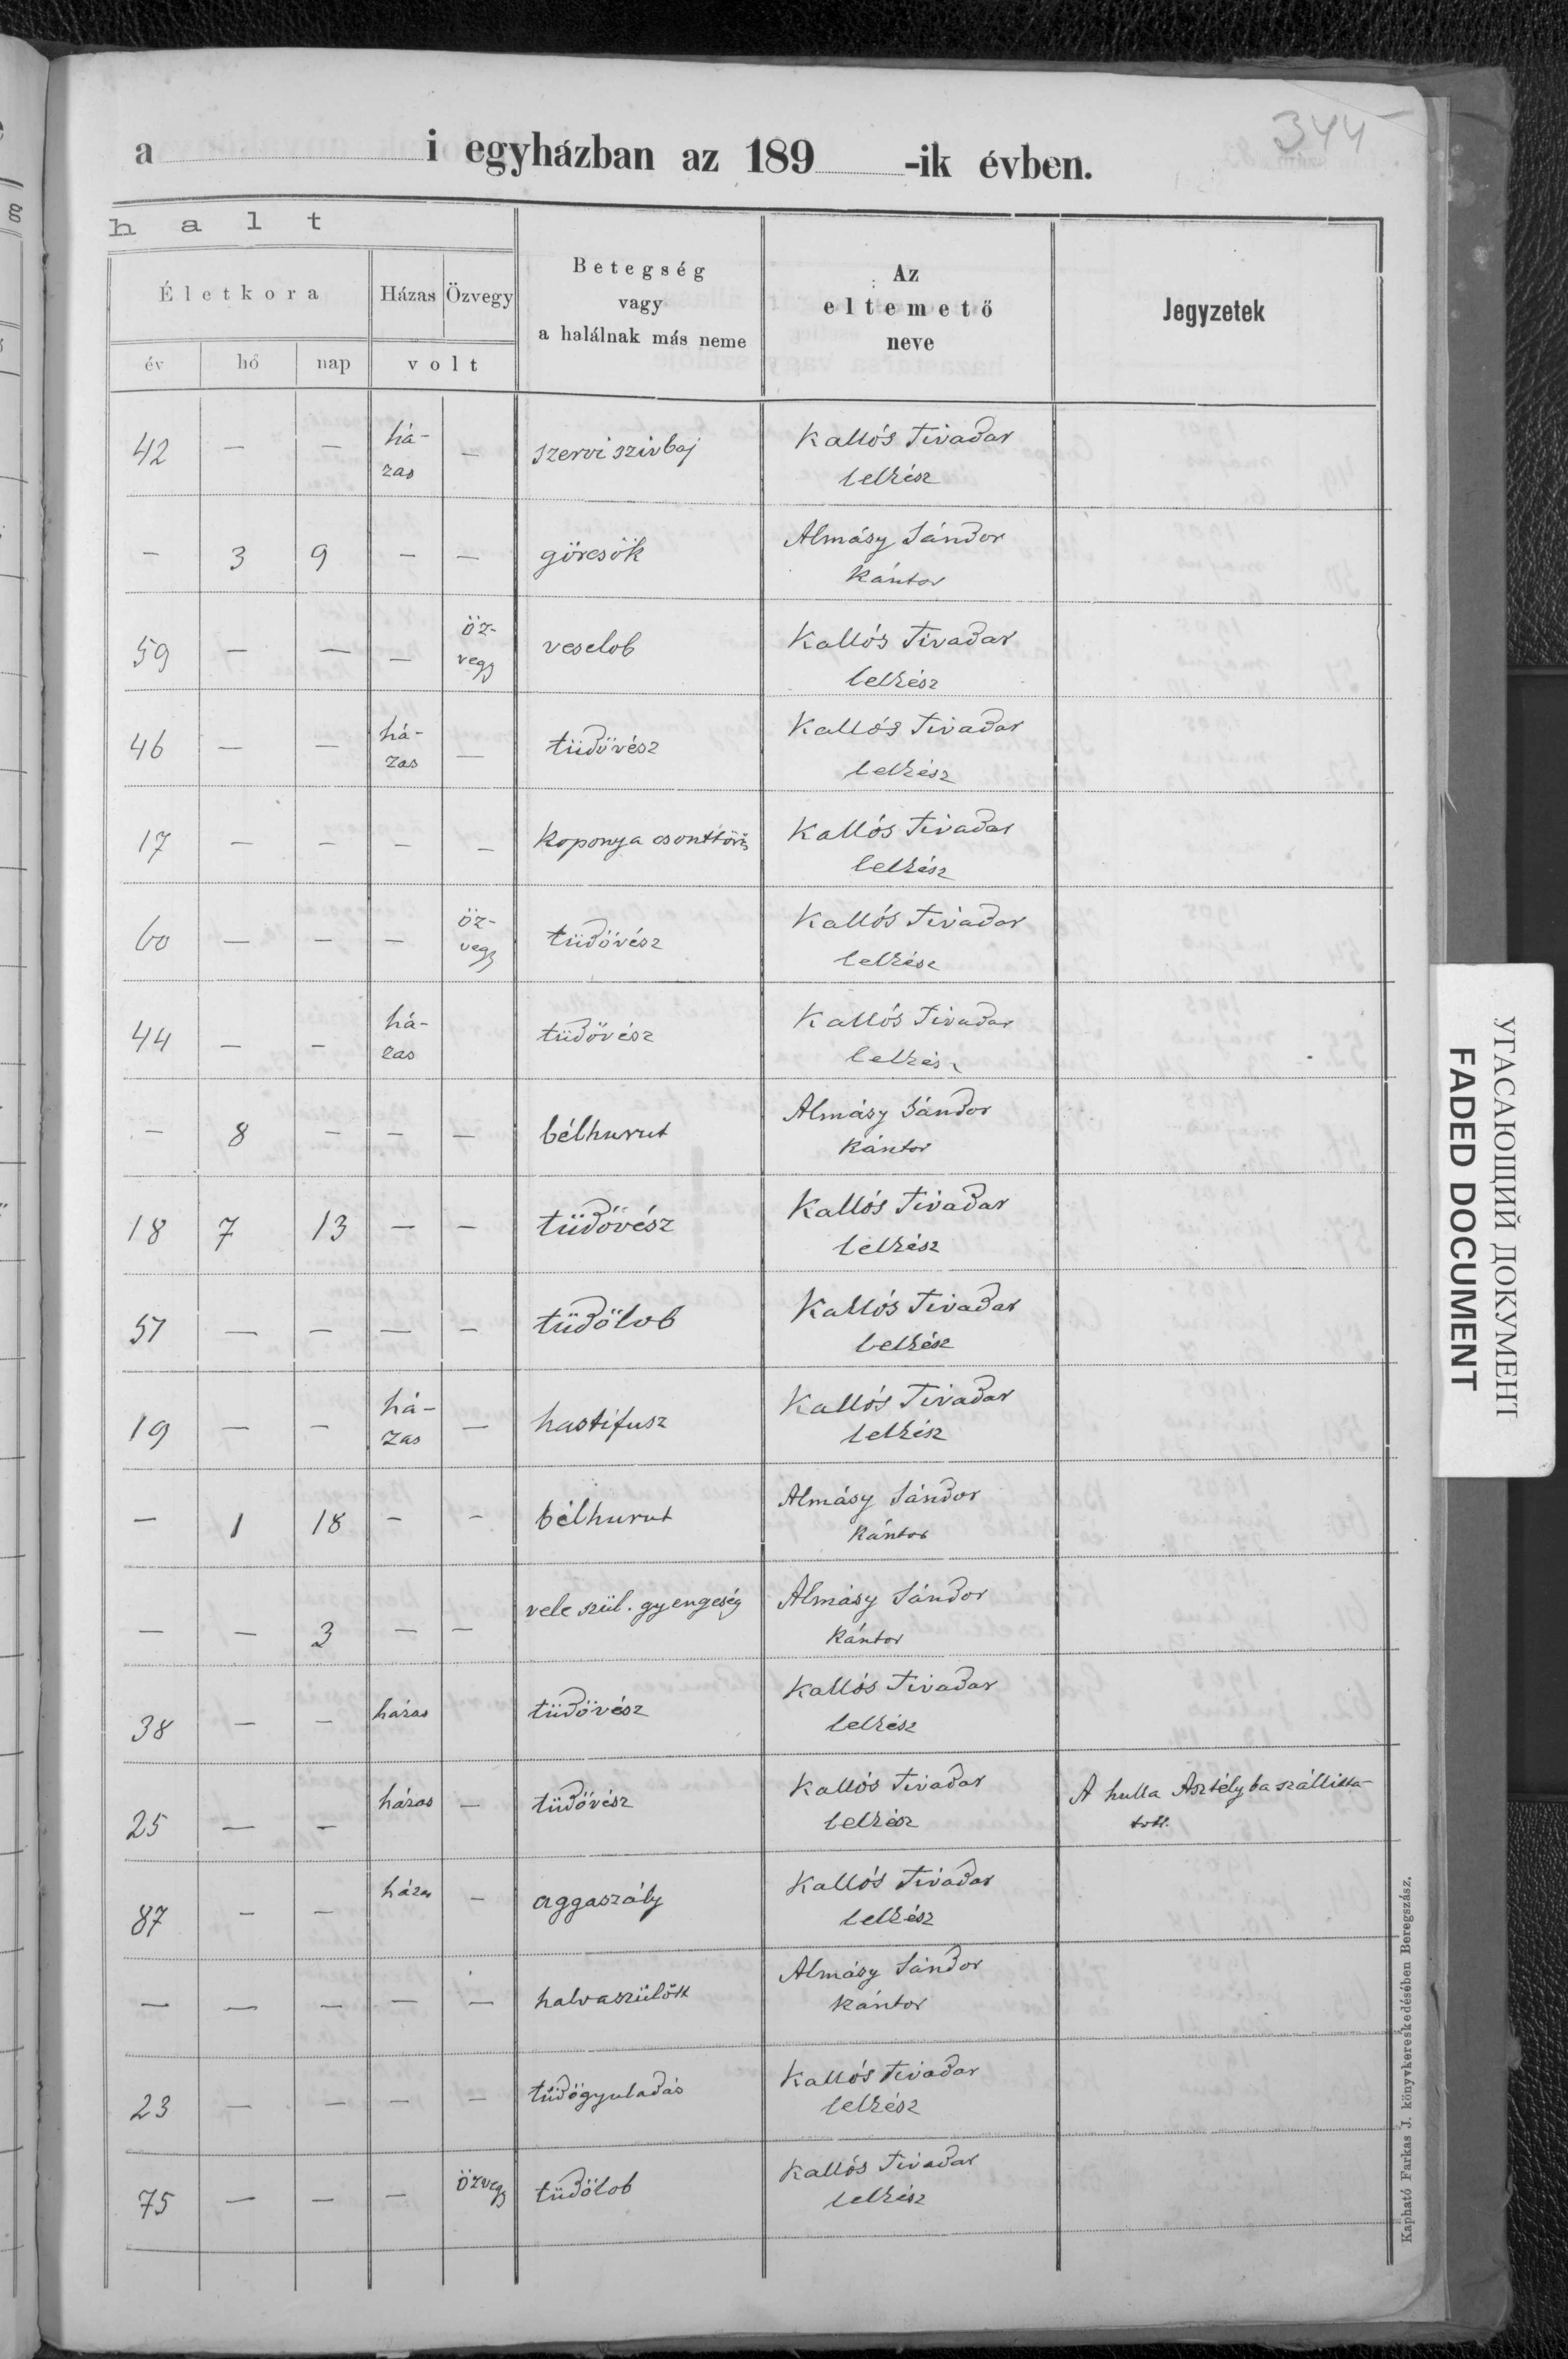 344
a i egyházban az 189 -ik évben.
halt
Életkora Házas Özvegy Betegség vagy a halálnak más neme Az eltemető neve Jegyzetek
év hó nap volt
42 — — há-zas — szervi szivbaj Kallós Tivadar lelkész
— 3 9 — — görcsök Almásy Sándor kántor
59 — — — öz-vegy veselob Kallós Tivadar lelkész
46 — — há-zas — tüdővész Kallós Tivadar lelkész
17 — — — — koponya csonttörés Kallós Tivadar lelkész
60 — — — öz-vegy tüdővész Kallós Tivadar lelkész
44 — — há-zas tüdővész Kallós Tivadar lelkész
— 8 — — — bélhurut Almásy Sándor kántor
18 7 13 — — tüdővész Kallós Tivadar lelkész
57 — — — — tüdőlob Kallós Tivadar lelkész
19 — — há-zas — hastifusz Kallós Tivadar lelkész
— 1 18 — — bélhurut Almásy Sándor kántor
— — 3 — — vele szül. gyengeség Almásy Sándor kántor
38 — — házas tüdővész Kallós Tivadar lelkész
25 — — házas — tüdővész Kallós Tivadar lelkész A hulla Asztélyba szállitta-tott.
87 — — házas — aggaszály Kallós Tivadar lelkész
— — — — — halvaszülött Almásy Sándor kántor
23 — — — — tüdőgyuladás Kallós Tivadar lelkész
75 — — — özvegy tüdőlob Kallós Tivadar lelkész
Kapható Farkas J. könyvkereskedésében Beregszász.
УГАСАЮЩИЙ ДОКУМЕНТ
FADED DOCUMENT